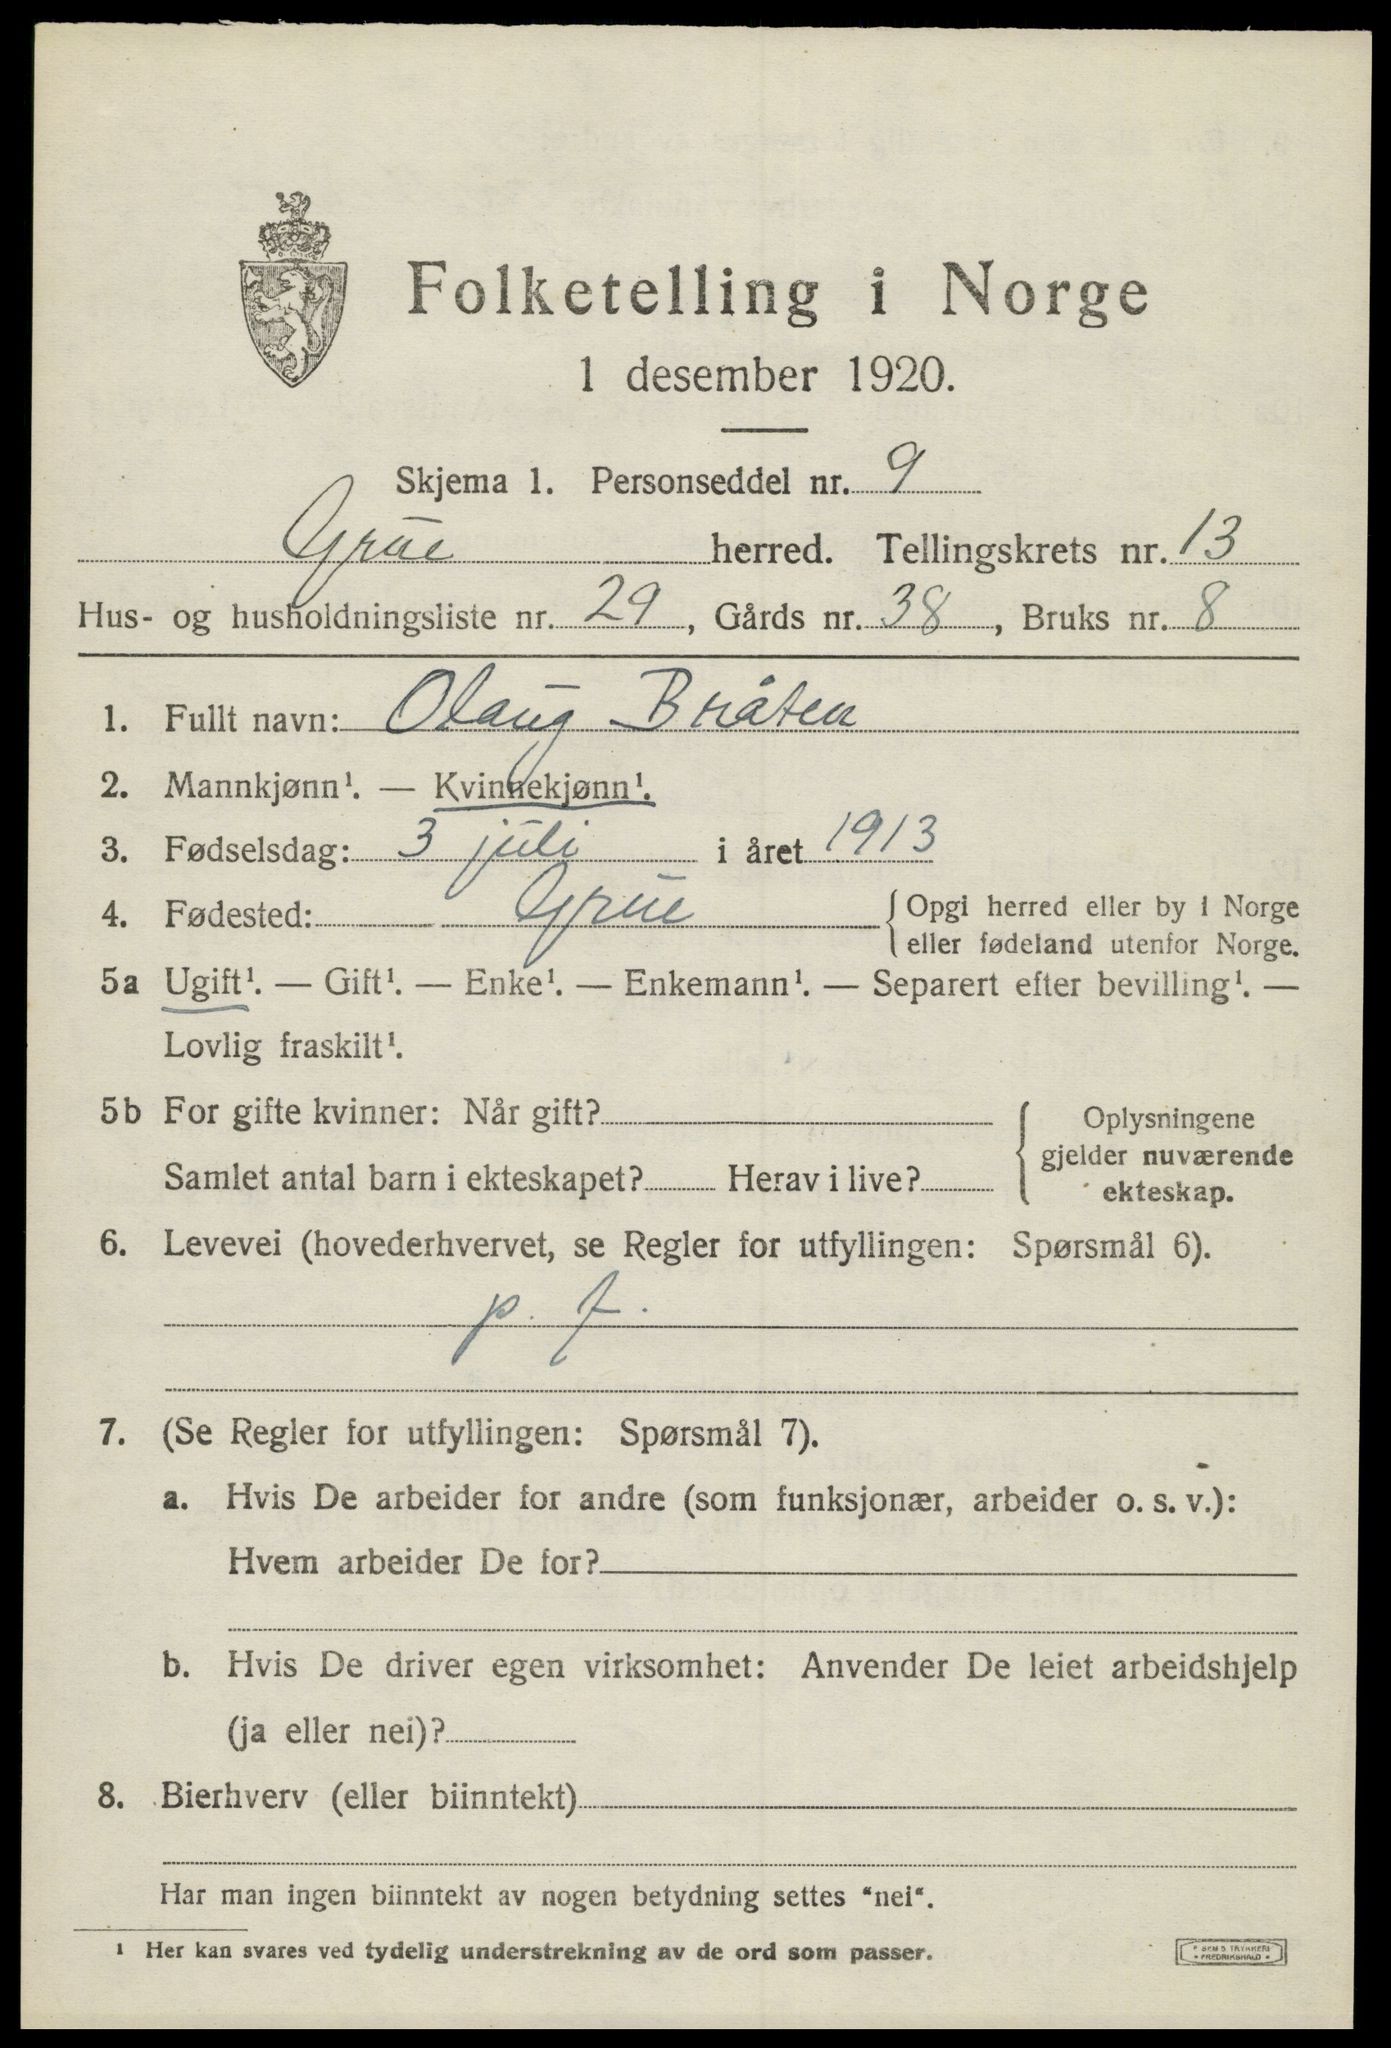 Folketelling i Norge
1 desember 1920.
Skjema 1. Personseddel nr. 9
Grue herred. Tellingskrets nr. 13
Hus- og husholdningsliste nr. 29, Gårds nr. 38, Bruks nr. 8
1. Fullt navn: Olaug Bråten
2. Mannkjønn¹. — Kvinnekjønn¹.
3. Fødselsdag: 3 juli i året 1913
4. Fødested: Grue { Opgi herred eller by i Norge
eller fødeland utenfor Norge.
5a Ugift¹. — Gift¹. — Enke¹. — Enkemann¹. — Separert efter bevilling¹. —
Lovlig fraskilt¹.
5b For gifte kvinner: Når gift? { Oplysningene
gjelder nuværende
Samlet antal barn i ekteskapet? Herav i live? ekteskap.
6. Levevei (hovederhvervet, se Regler for utfyllingen: Spørsmål 6).
p. f.
7. (Se Regler for utfyllingen: Spørsmål 7).
a. Hvis De arbeider for andre (som funksjonær, arbeider o. s. v.):
Hvem arbeider De for?
b. Hvis De driver egen virksomhet: Anvender De leiet arbeidshjelp
(ja eller nei)?
8. Bierhverv (eller biinntekt)
Har man ingen biinntekt av nogen betydning settes "nei".
¹ Her kan svares ved tydelig understrekning av de ord som passer.
SEM'S TRYKKERI
• FREDRIKSHALD •